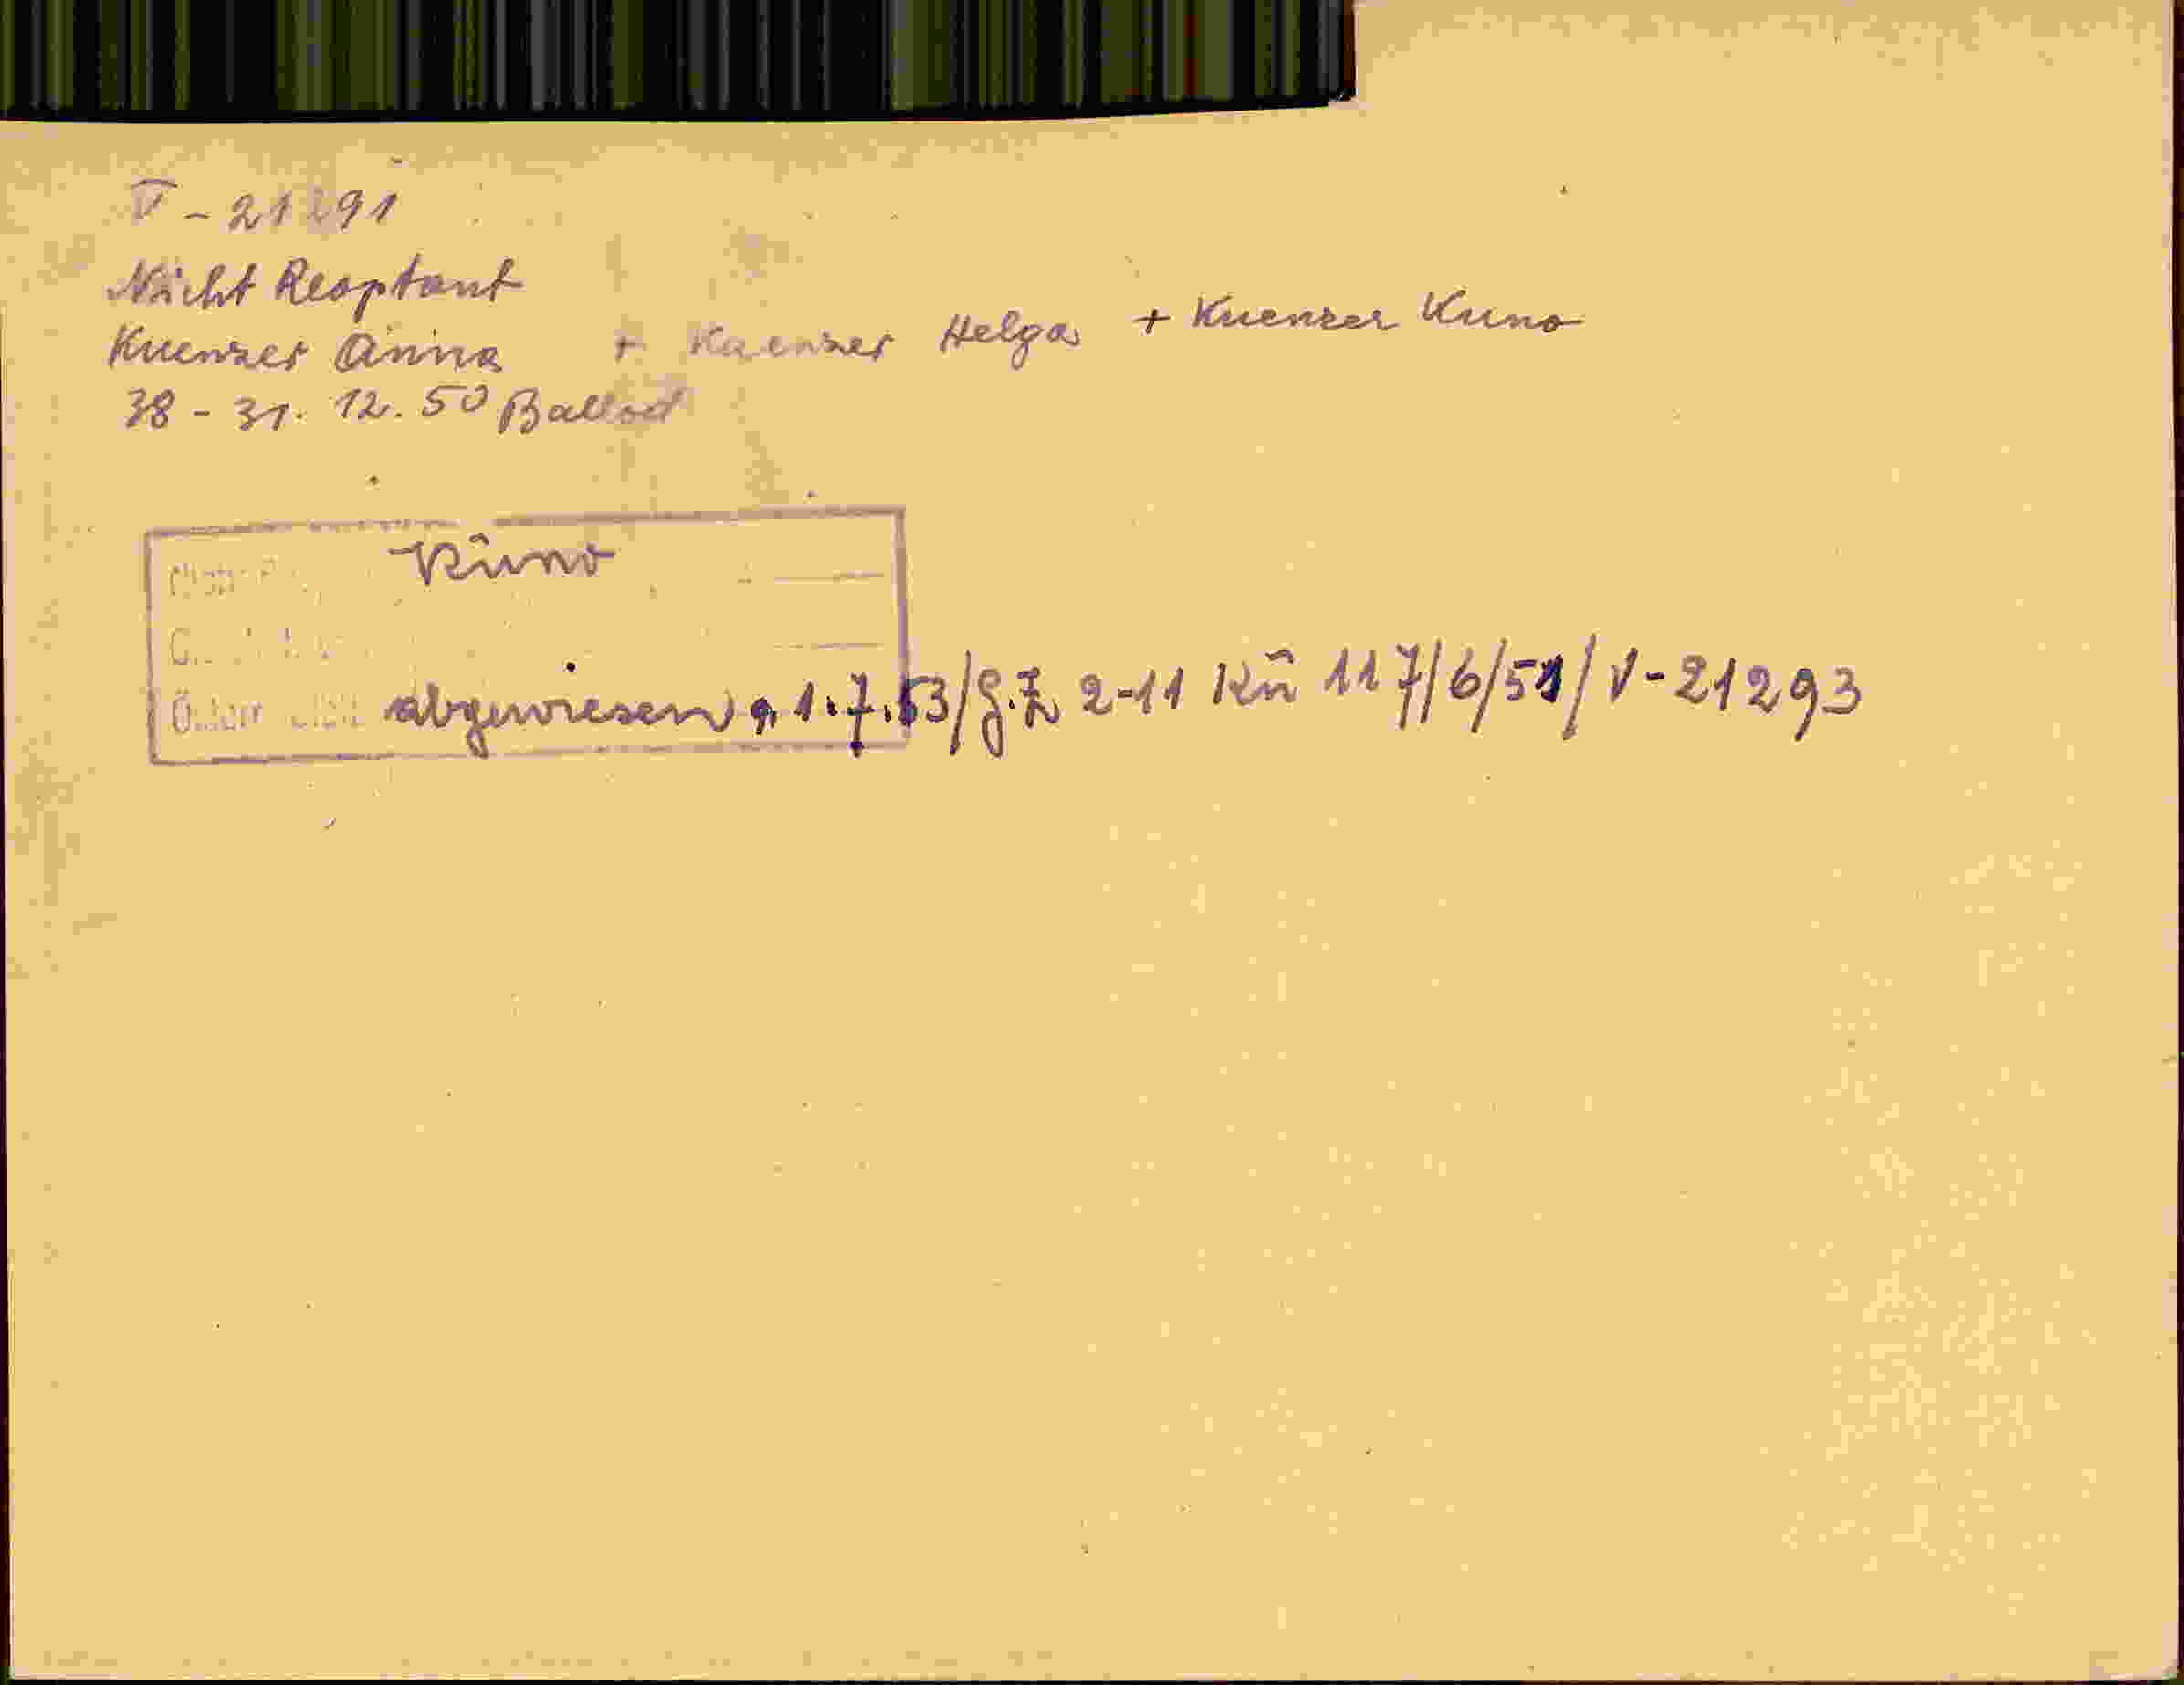 V - 21291
Nicht Reoptant
Kuenzer Anna + Kuenzer Helga + Kuenzer Kuno
38 - 31. 12. 50 Ballod
Kuno
abgewiesen 1.7.53/G.Z 2-11 Kŭ 117/6/51/V-21293